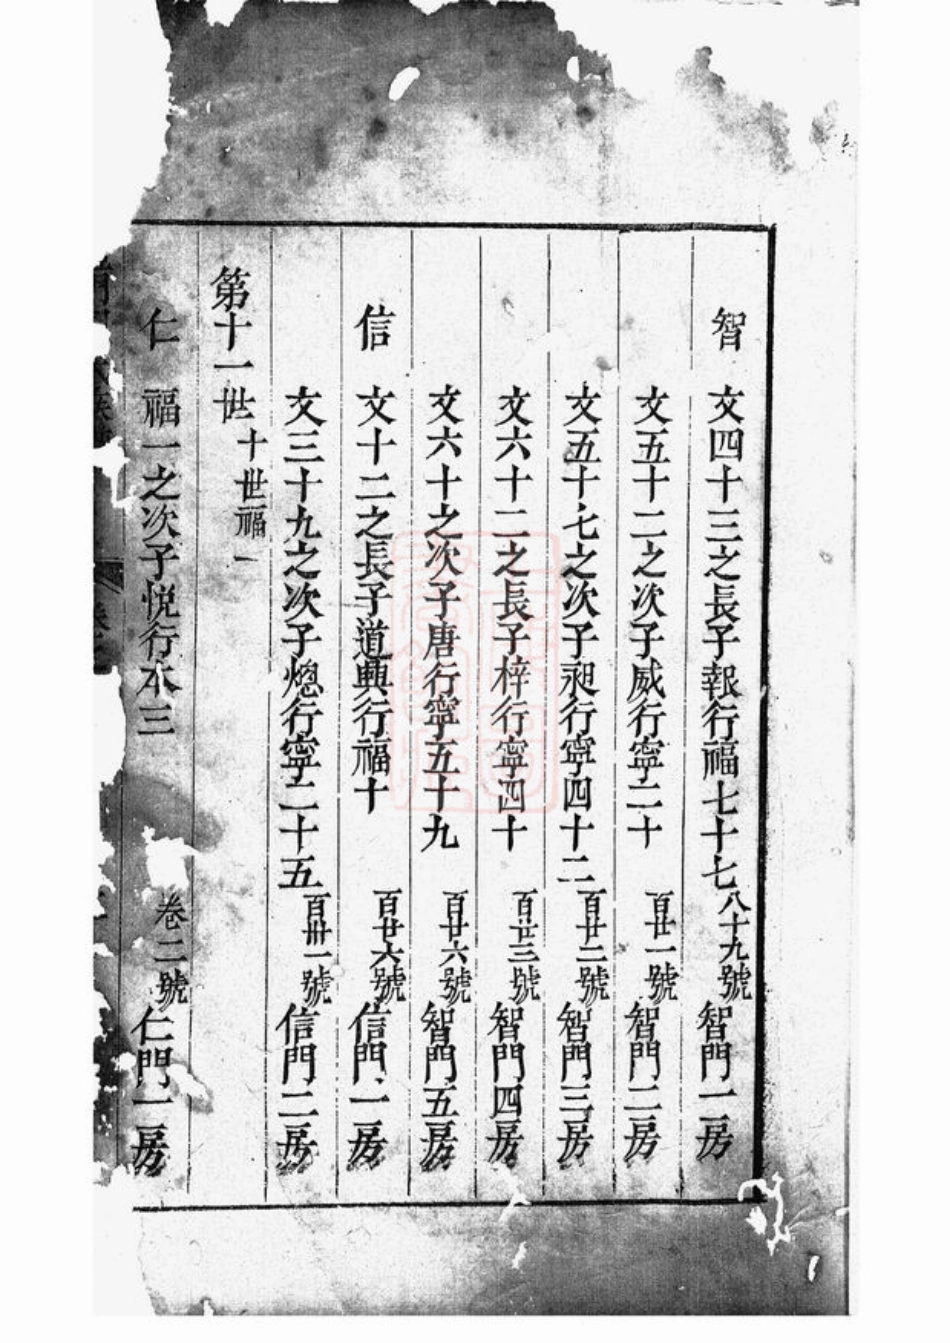 智　文四十三之長子報行福七十七八十九號智門一房
文五十二之次子威行寧二十百廿一號智門二房
文五十七之次子昶行寧四十二百廿二號智門三房
文六十二之長子梓行寧四十百廿三號智門四房
文六十之次子唐行寧五十九百廿六號智門五房
信　文十二之長子道興行福十百廿六號信門一房
文三十九之次子熜行寧二十五百卅一號信門二房
第十一世十世福一
仁　福一之次子悅行本三卷二號仁門一房